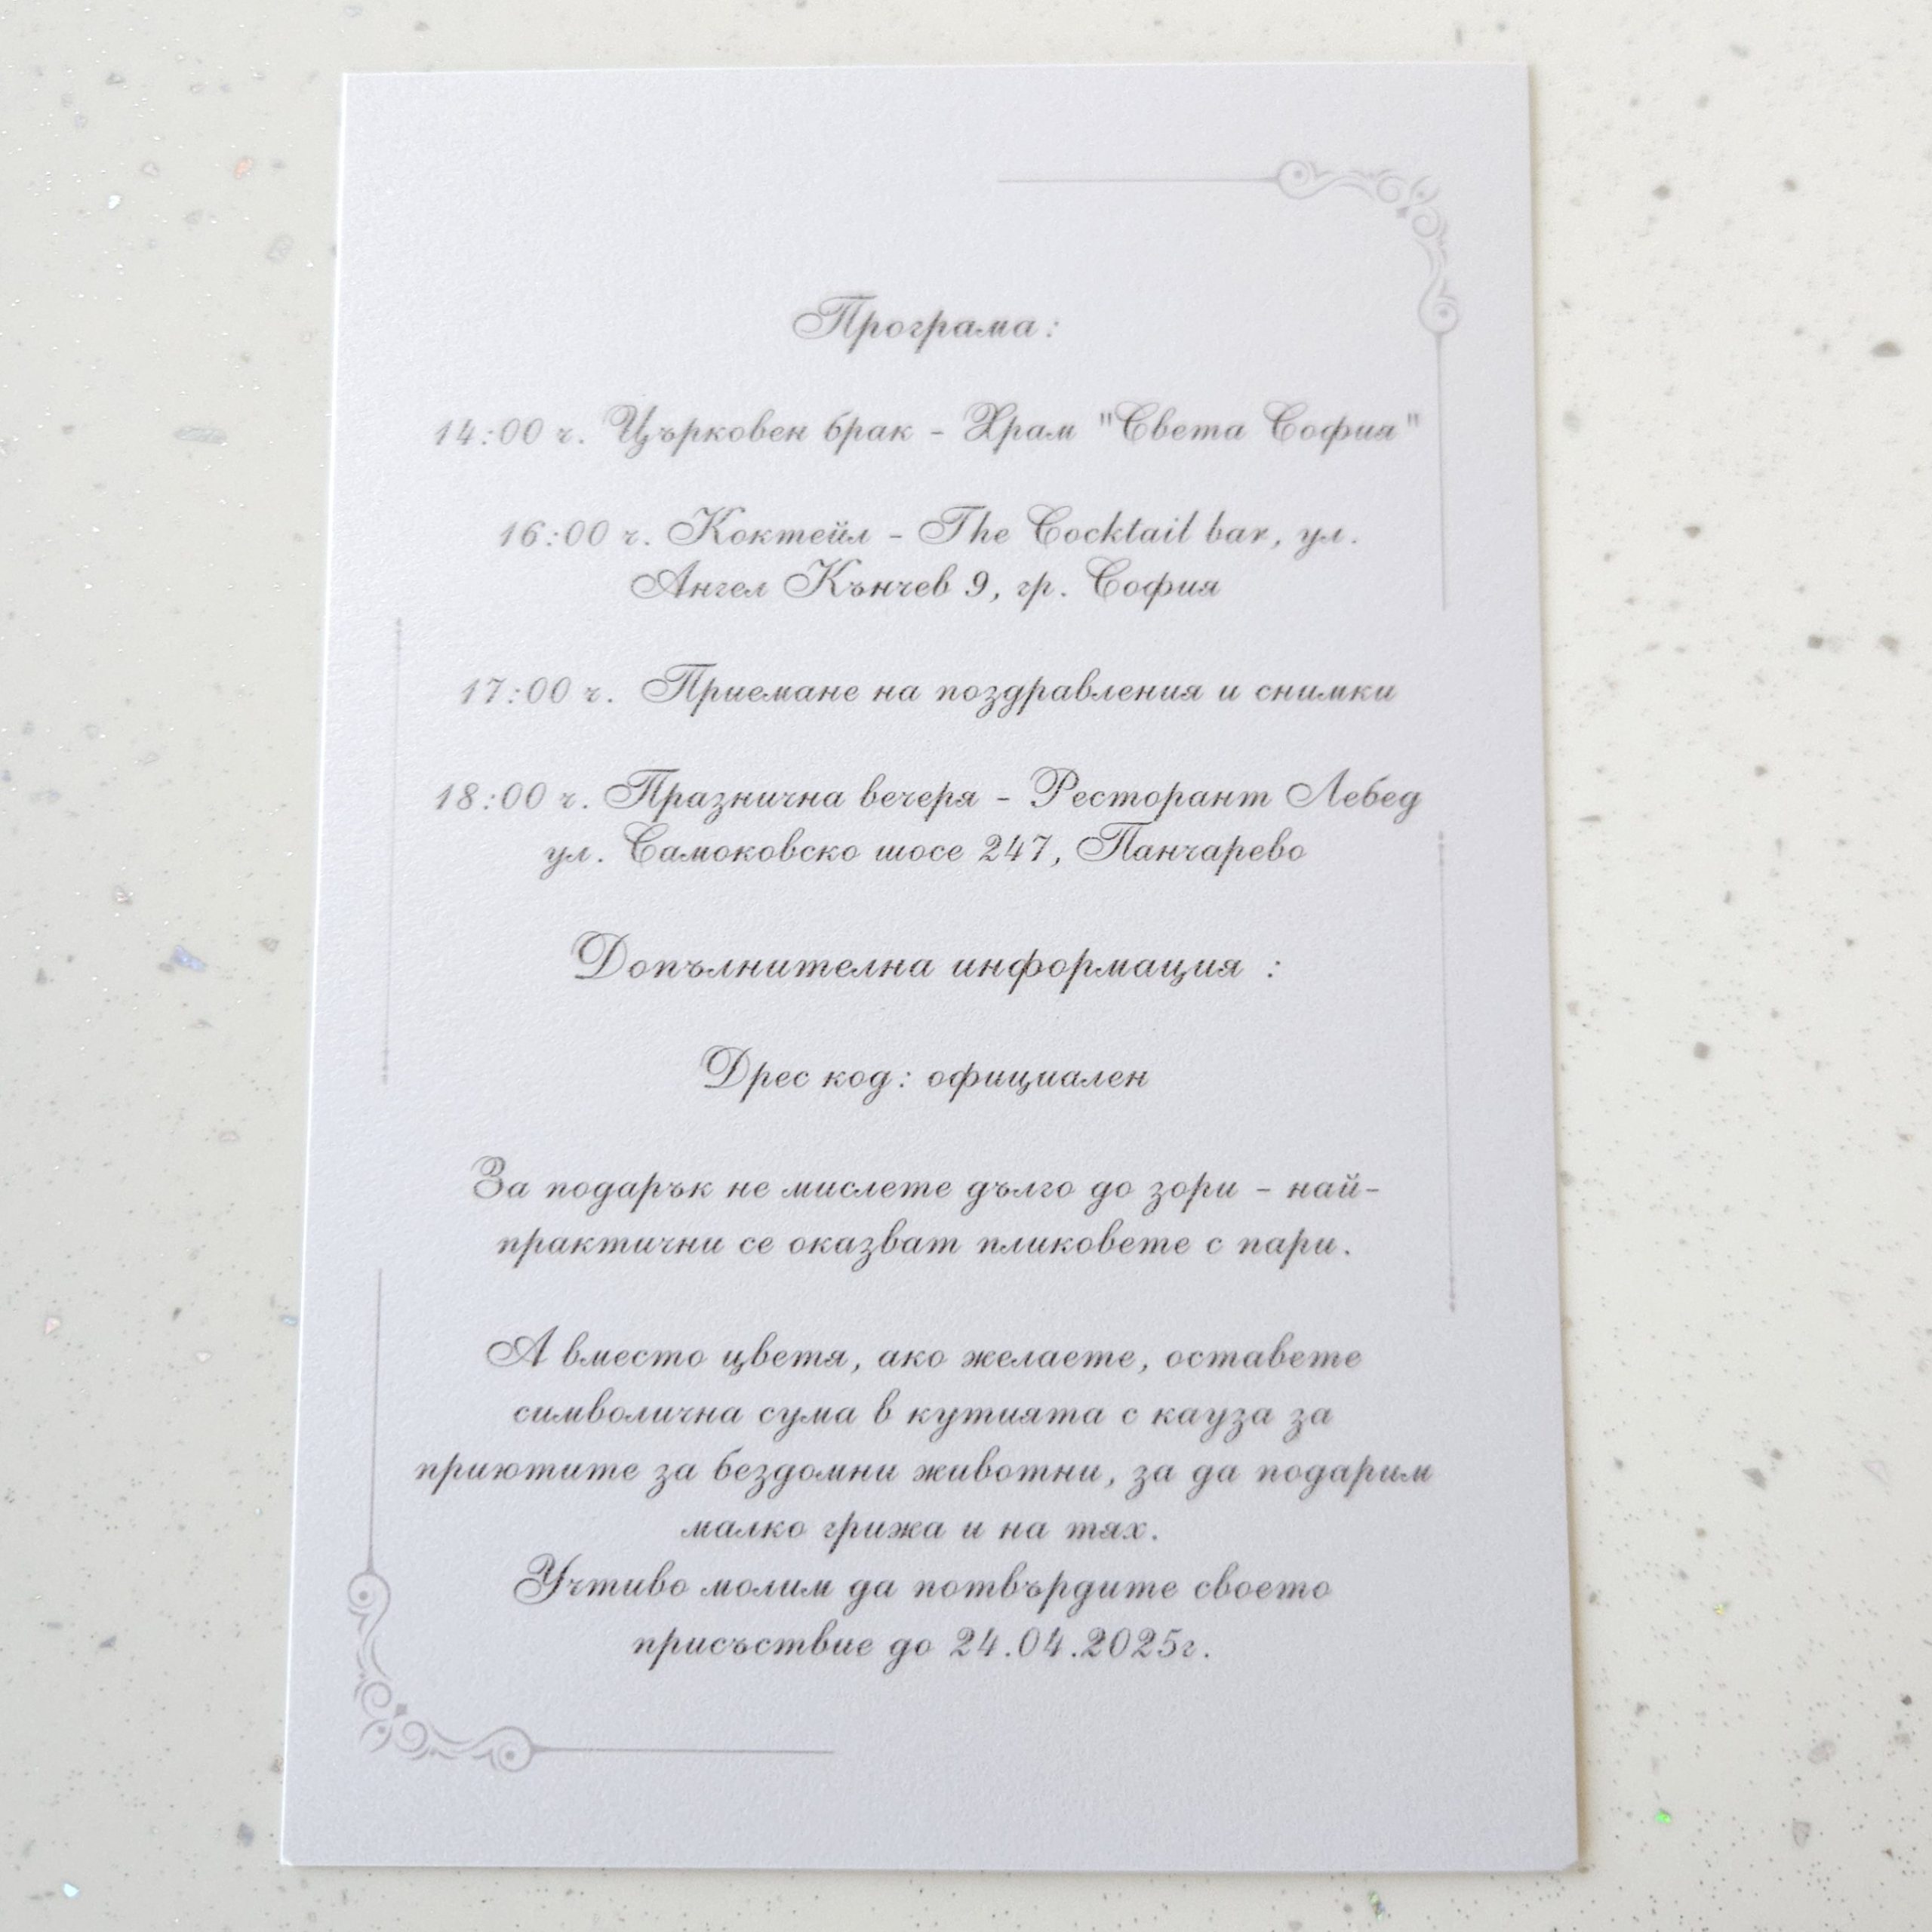 Програма:
14:00 ч. Църковен брак - Храм "Света София"
16:00 ч. Коктейл - The Cocktail bar, ул.
Ангел Кънчев 9, гр. София
17:00 ч. Приемане на поздравления и снимки
18:00 ч. Празнична вечеря - Ресторант Лебед
ул. Самоковско шосе 247, Панчарево
Допълнителна информация :
Дрес код: официален
За подарък не мислете дълго до зори - най-
практични се оказват пликовете с пари.
А вместо цветя, ако желаете, оставете
символична сума в кутията с кауза за
приютите за бездомни животни, за да подарим
малко грижа и на тях.
Учтиво молим да потвърдите своето
присъствие до 24.04.2025г.